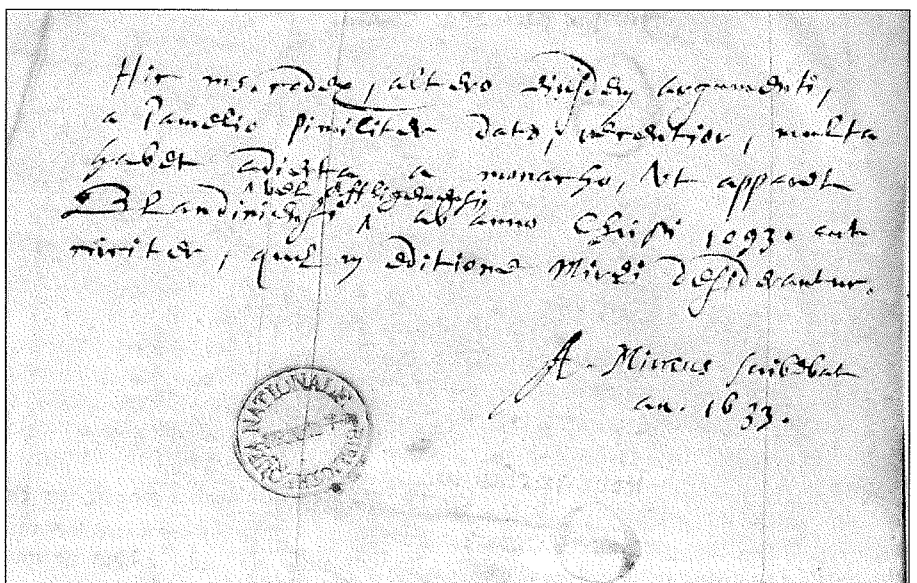 Hic ms. codex, altero eiusdem argumenti,
a Pamelio similiter dato, recentior, multa
habet adiecta a monacho, ut apparet
vel Affligemensi
Blandiniensi ^ ab anno Christi 1093. aut
circiter, quæ in editione Miræi desiderantur.
A. Miræus scribebat
an. 1633.
NATIONALE